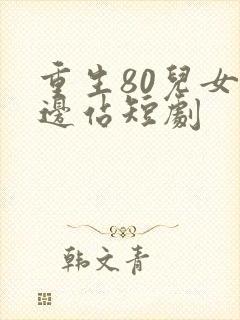 重生80兒女
邊佔短劇
韩文青